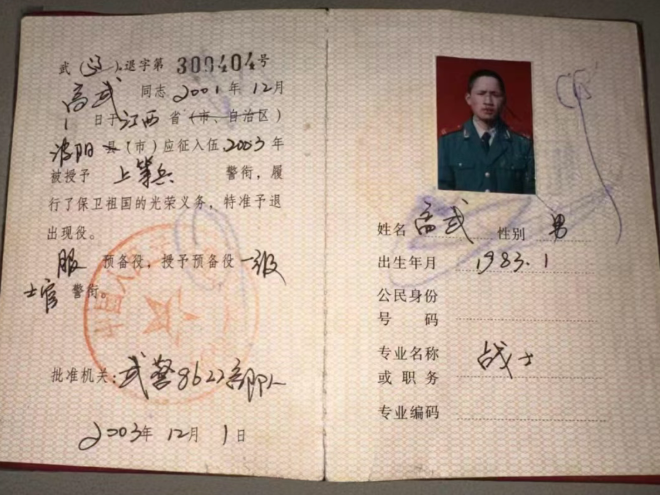 武（辽）退字第309404号
高武 同志 2001年12月
1 日于江西省（市、自治区）
波阳县（市）应征入伍2003年
被授予 上等兵 警衔，履
行了保卫祖国的光荣义务，特准予退
出现役。
服 预备役，授予预备役一级
士官 警衔。
批准机关：武警8622部队
2003年12月1日
姓名 高武 性别 男
出生年月 1983.1
公民身份
号码
专业名称 战士
或职务
专业编码